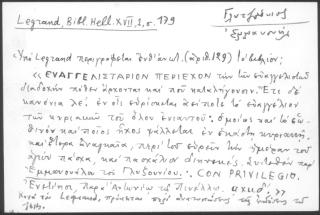 Legrand, Bibl. Hell. XVII, 1, σ. 179
Γλυτζούνιος
Ἐμμανουήλ
Ὑπὸ Legrand περιγράφεται ἐνθ' ἀνωτ. (ἀριθ. 129) τὸ βιβλίον:
«ΕΥΑΓΓΕΛΙΣΤΑΡΙΟΝ ΠΕΡΙΕΧΟΝ τὴν τῶν εὐαγγελιστῶν
διαδοχὴν πόθεν ἄρχονται καὶ ποῦ καταλήγουσιν. Ἔτι δὲ
κανόνια λε΄ ἐν οἷς εὑρίσκεται τὸ εὐαγγέλιον
τῶν κυριακῶν τοῦ ὅλου ἐνιαυτοῦ. ὁμοίως καὶ τὸ ἑω-
θινὸν καὶ ποῖος ἦχος ψάλλεται ἐν ἑκάστῃ κυριακῇ.
καὶ ἕτερα ἀναγκαῖα, περὶ τοῦ εὑρεῖν τὴν ἡμέραν τοῦ
ἁγίου πάσχα, καὶ πασχάλιον διηνεκές. Συντεθὲν παρὰ
Ἐμμανουήλου τοῦ Γλυζονίου. CON PRIVILEGIO.
Ἐνετίησιν, Παρὰ Ἀντωνίῳ τῷ Πινέλλῳ. αχιδ΄.»
Κατὰ τὸν Legrand, πρόκειται περὶ ἀνατυπώσεως τῆς ἐκδόσεως τοῦ